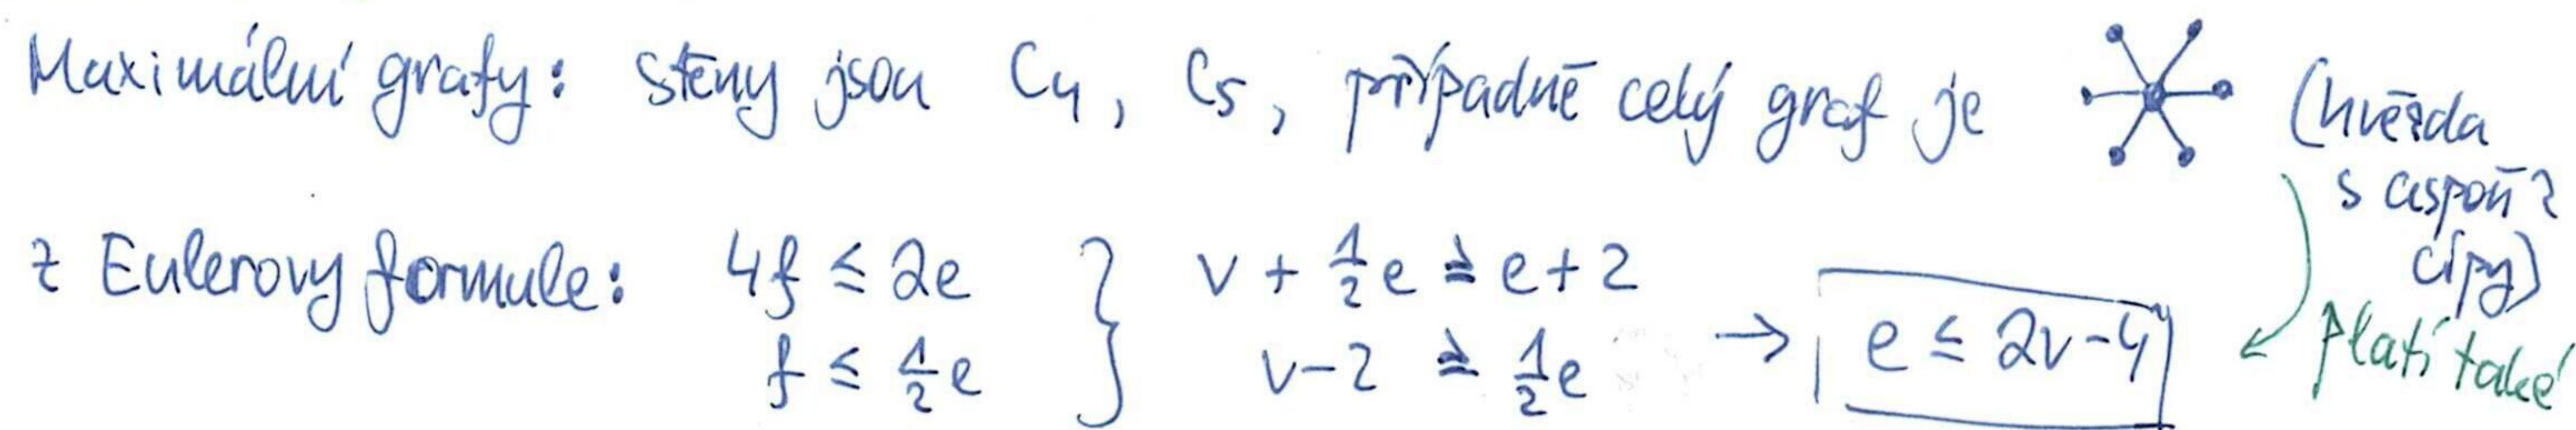 Maximální grafy: stěny jsou C₄, C₅, případně celý graf je (hvězda
s aspoň 2
cípy)
z Eulerovy formule: 4f ≤ 2e } v + ½e ≥ e + 2
f ≤ ½e v - 2 ≥ ½e → e ≤ 2v - 4 platí také